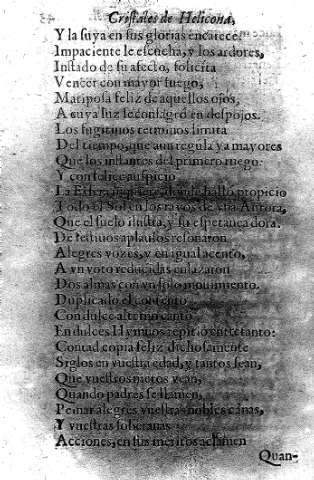 Cristales de Helicona,
Y la suya en sus glorias encarece.
Impaciente le escucha, y los ardores,
Instado de su afecto, solicita
Vencer con mayor fuego,
Mariposa feliz de aquellos ojos,
A cuya luz se consagrò en despojos.
Los fugitiuos terminos limita
Del tiempo, que aun regula ya mayores
Que los instantes del primero ruego.
Y con felice auspicio
La donde hallò propicio
Todo el Sol en los rayos de vna Aurora,
Que el suelo ilustra, y su esperança dora.
De festiuos aplausos resonaron
Alegres vozes, y en igual acento,
A vn voto reducidas enlazaron
Dos almas con vn solo mouimiento.
Duplicado el contento
Con dulce alterno canto,
En dulces Hymnos repitiò entretanto:
Contad copia feliz dichosamente
Siglos en vuestra edad, y tantos sean,
Que vuestros nietos vean,
Quando padres se llamen,
Peinar alegres vuestras nobles canas,
Y vuestras soberanas
Acciones, en sus meritos aclamen
Quan-